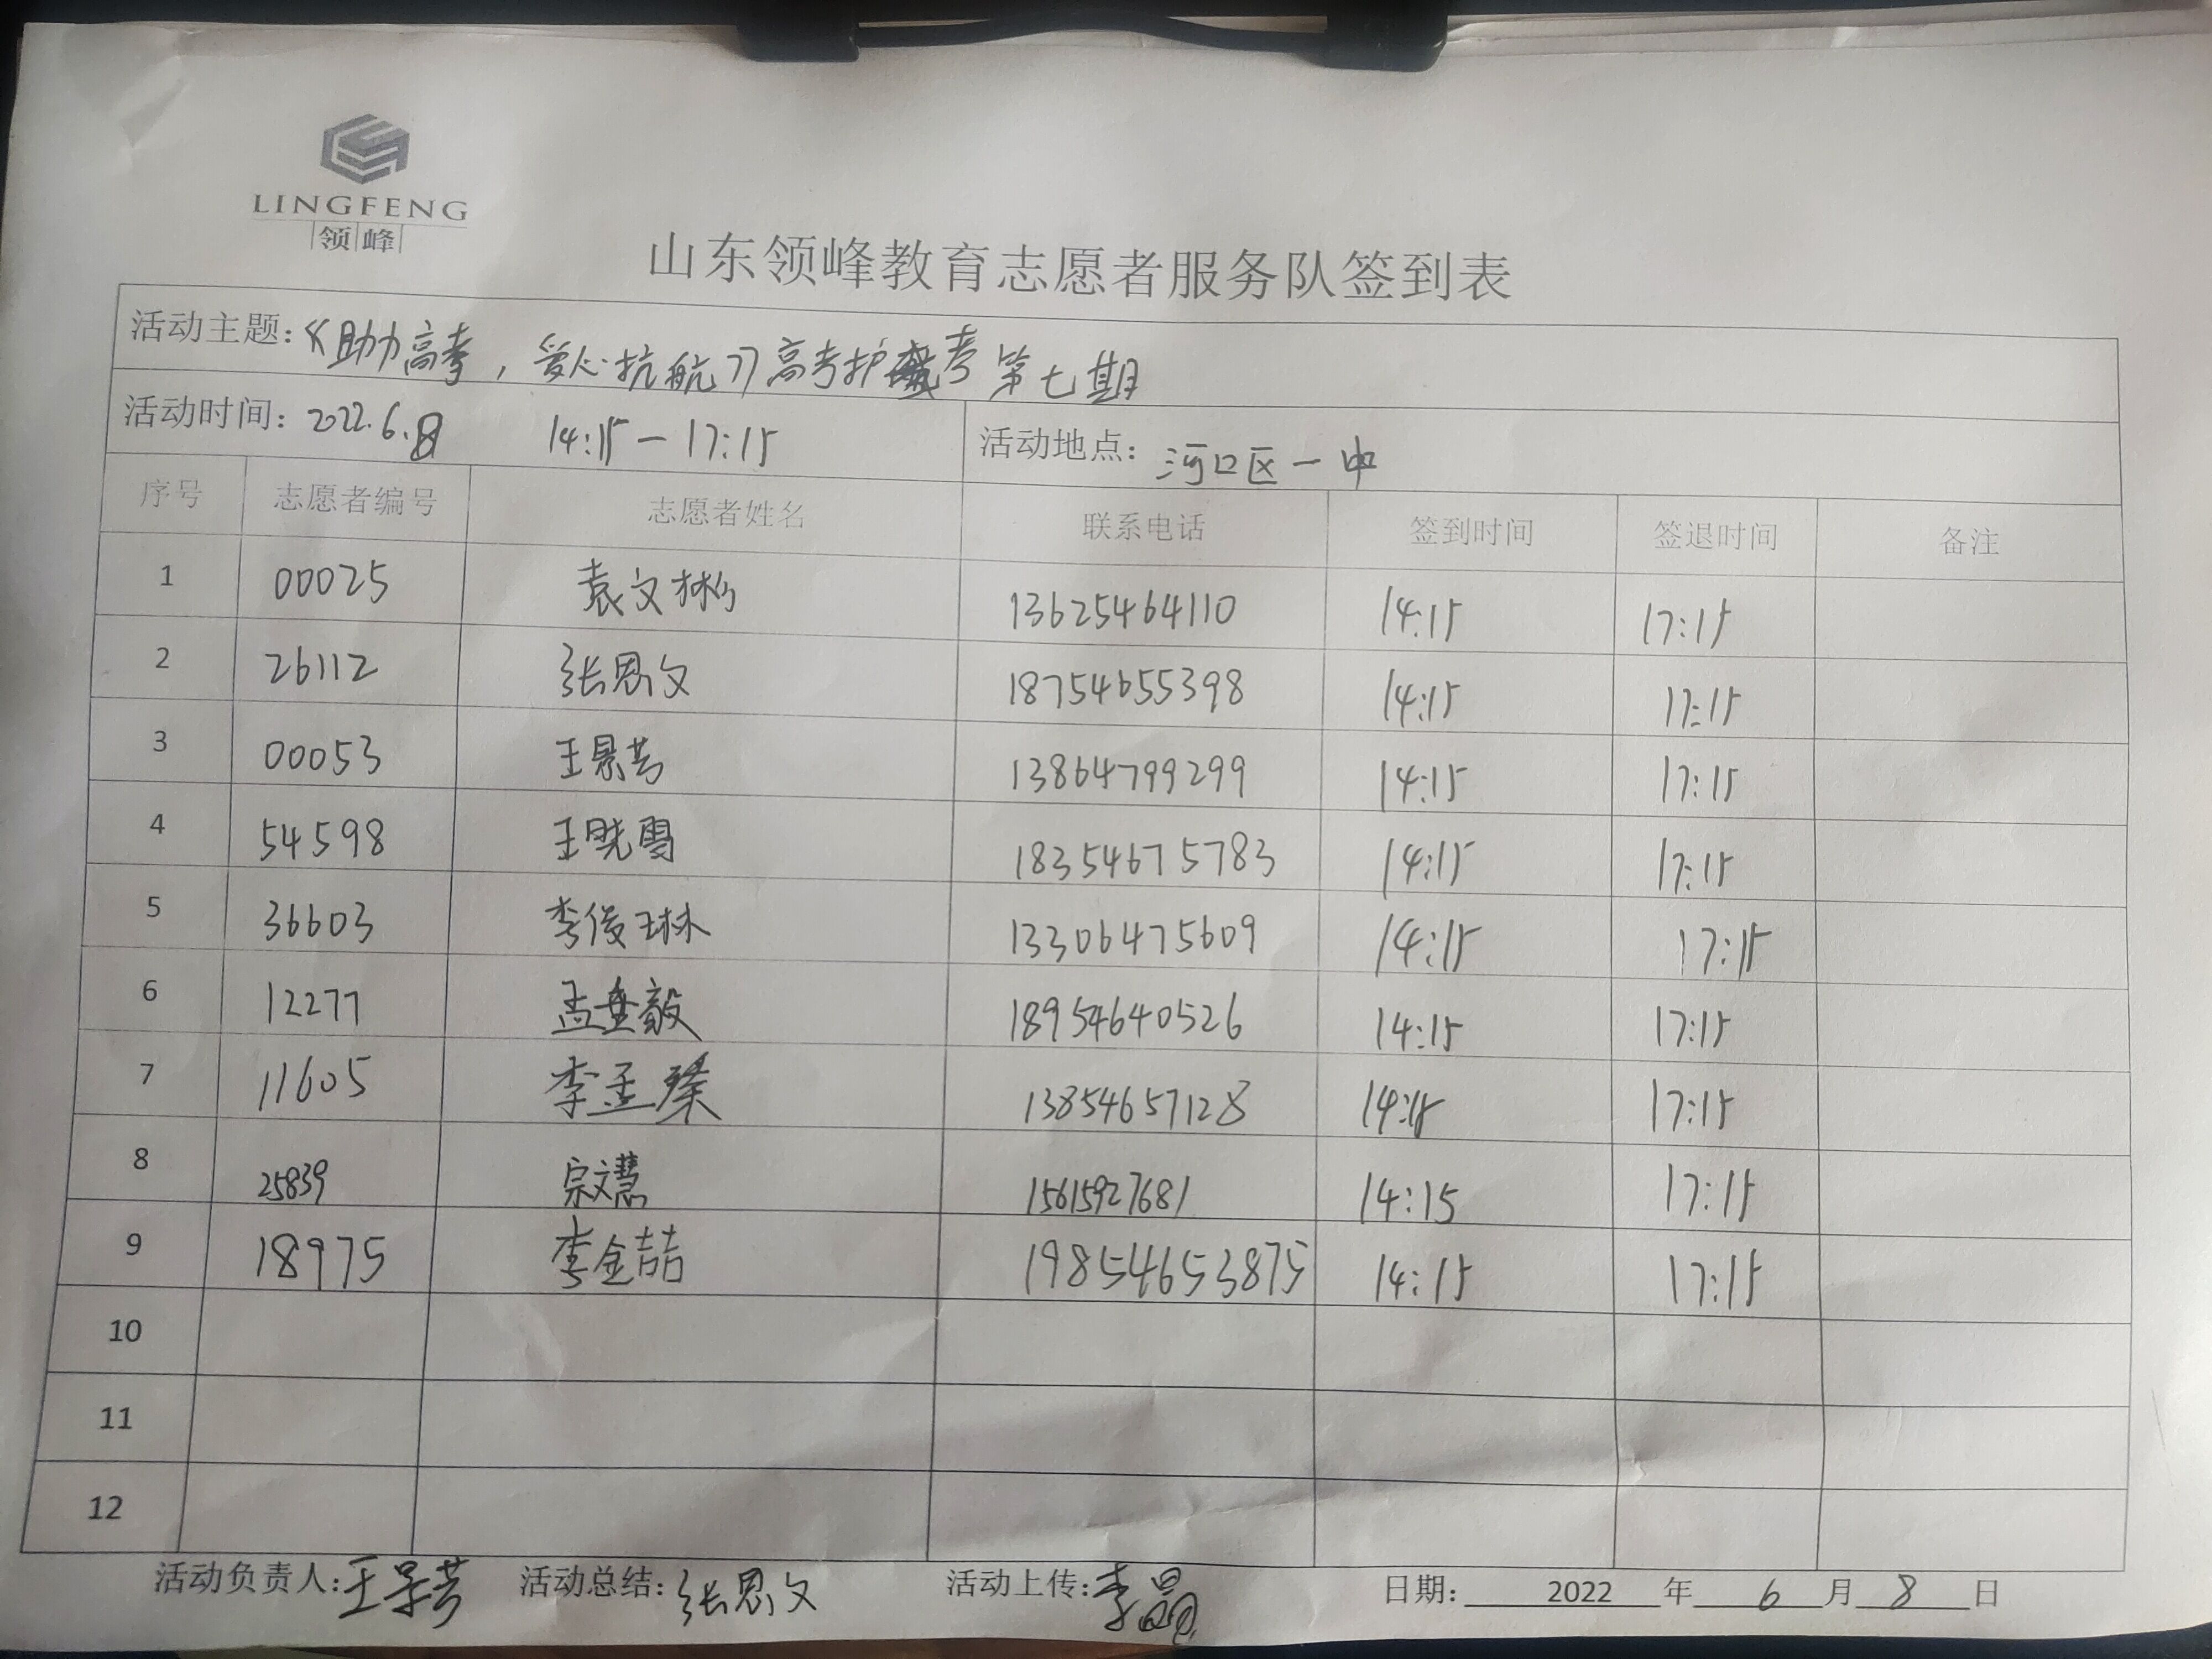 LINGFENG
领峰
山东领峰教育志愿者服务队签到表
活动主题:《助力高考,爱心抗航》高考护考第七期
活动时间:2022.6.8 14:15—17:15 活动地点:河口区一中
序号 志愿者编号 志愿者姓名 联系电话 签到时间 签退时间 备注
1 00025 袁文彬 13625464110 14:15 17:15
2 26112 张恩文 18754655398 14:15 17:15
3 00053 王景芳 13864799299 14:15 17:15
4 54598 王晓雪 18354675783 14:15 17:15
5 36603 李俊琳 13306475609 14:15 17:15
6 12277 孟垂毅 18954640526 14:15 17:15
7 11605 李孟璨 13854657128 14:15 17:15
8 25839 宗文慧 15615927681 14:15 17:15
9 18975 李金喆 19854653875 14:15 17:15
10
11
12
活动负责人:王景芳 活动总结:张恩文 活动上传:李 日期: 2022 年 6 月 8 日